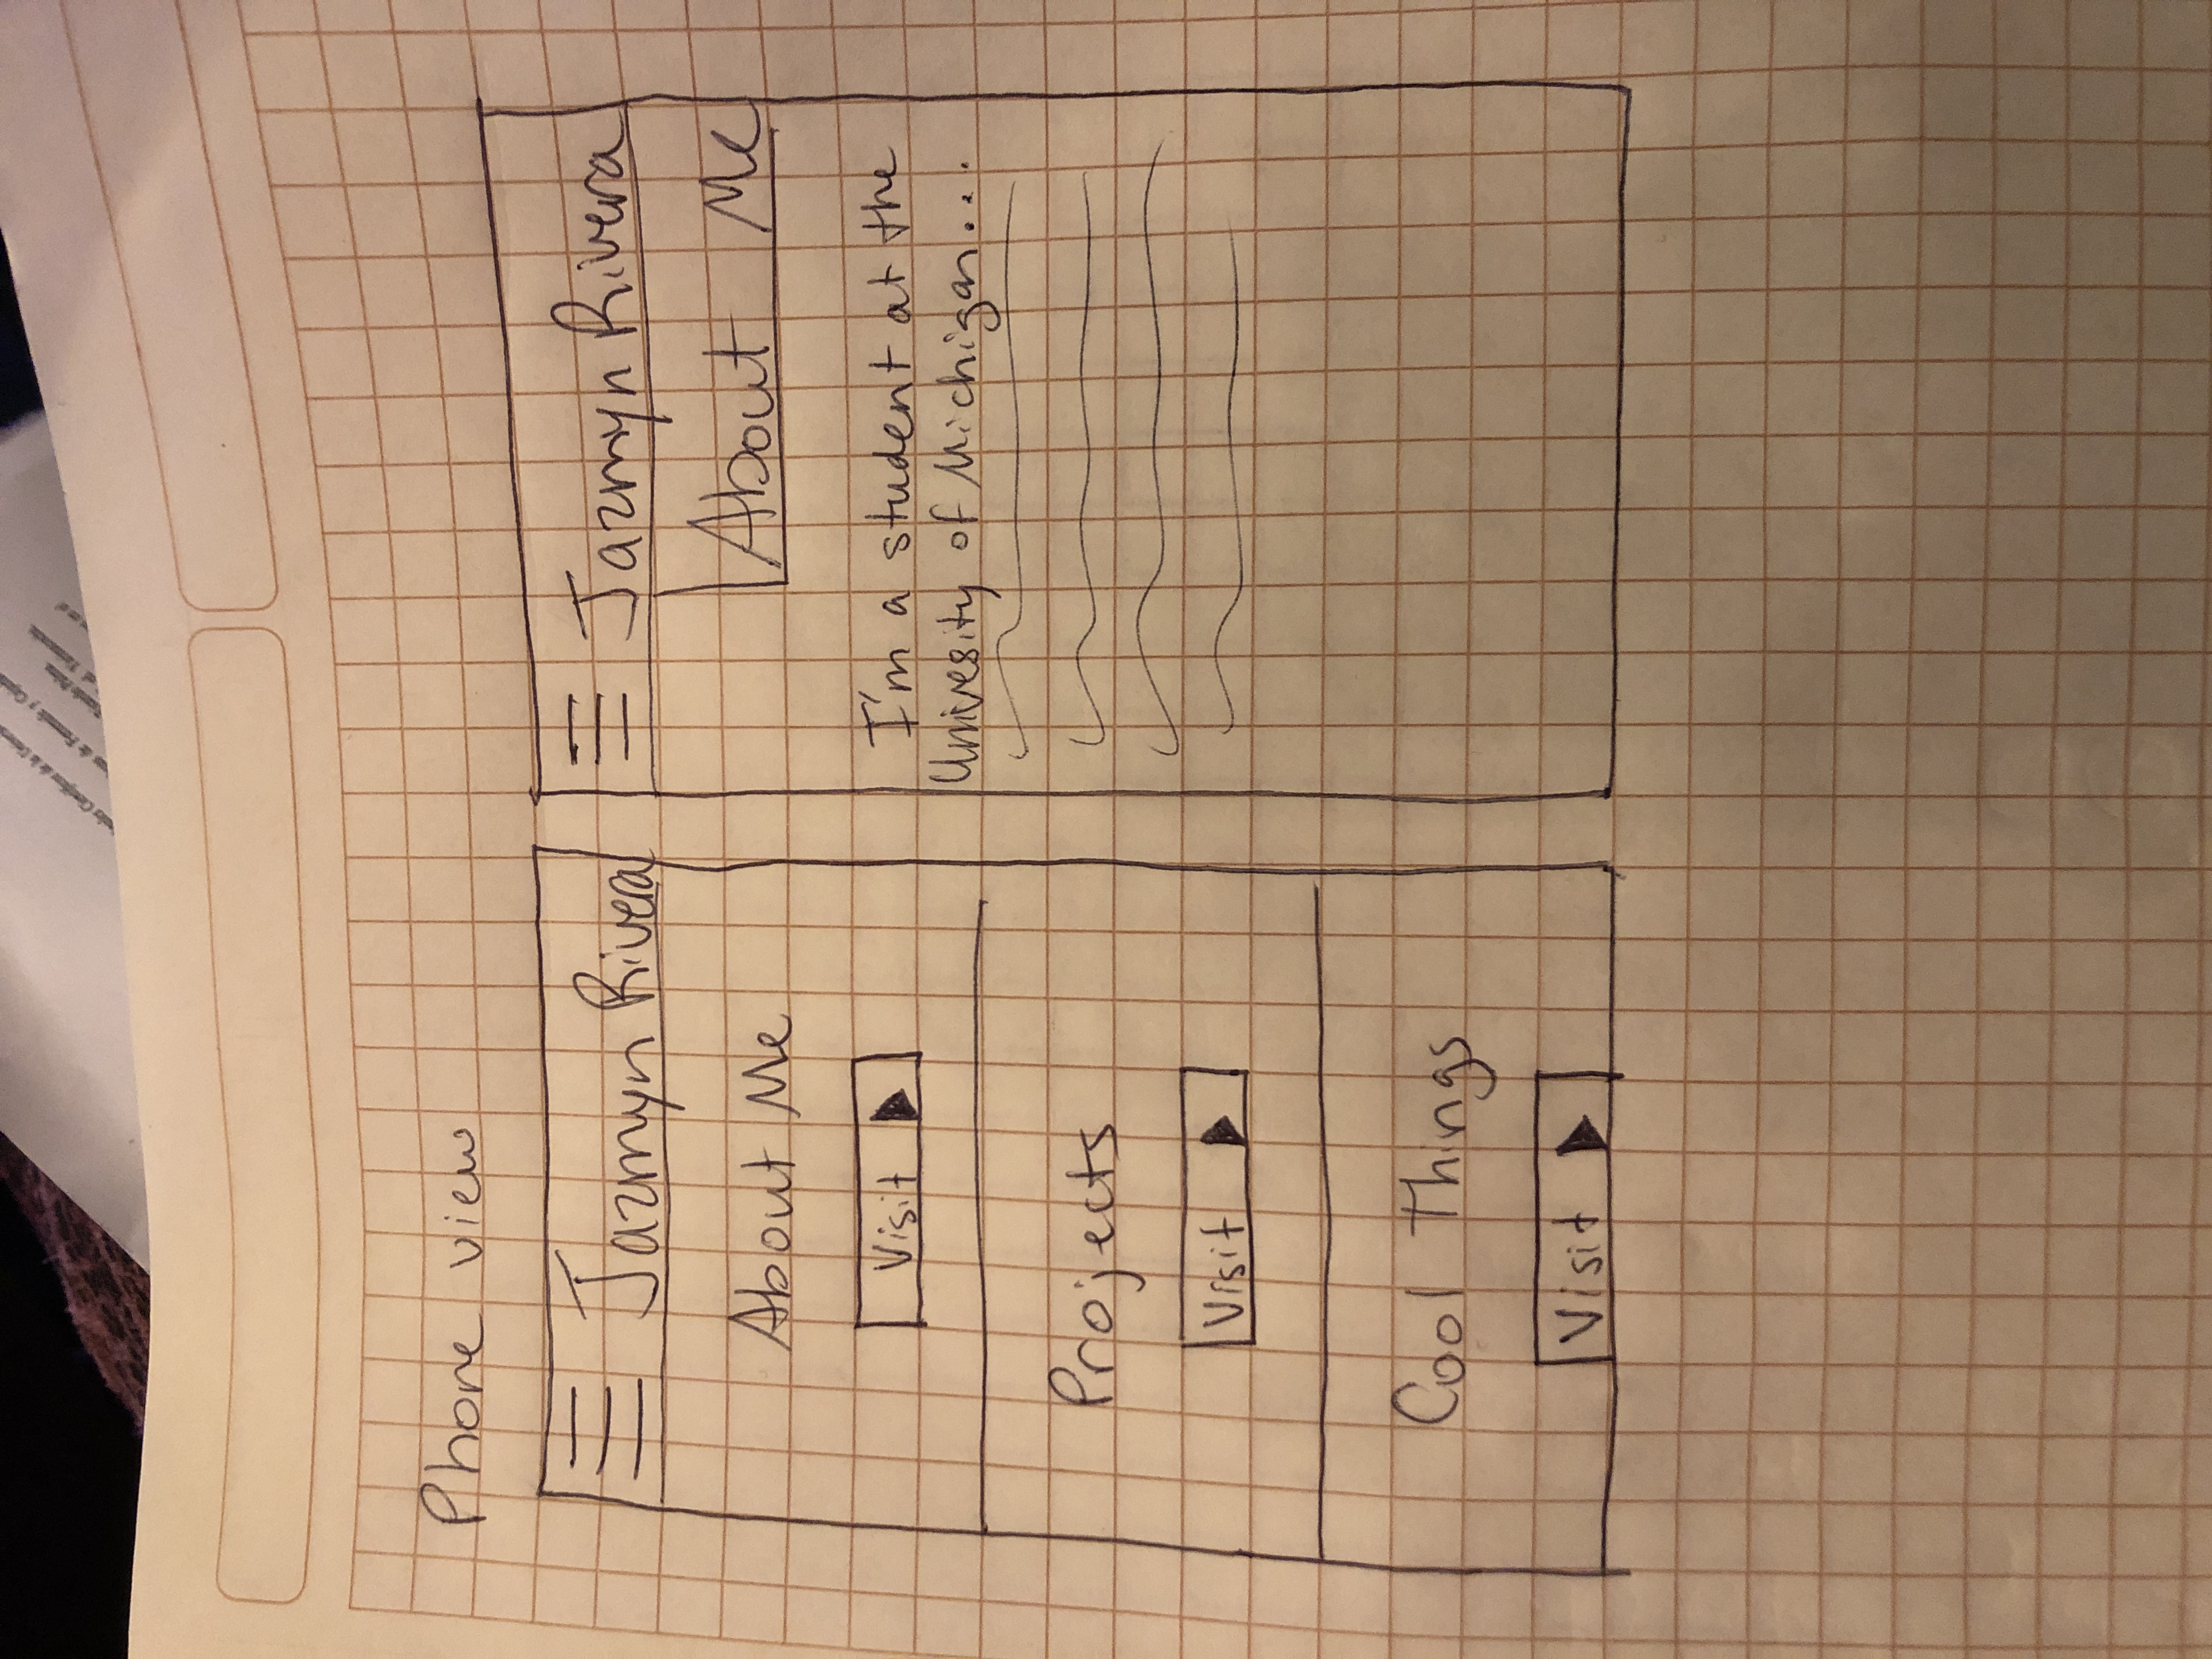 Phone view
Jazmyn Rivera
About Me
Visit
Projects
Visit
Cool Things
Visit
Jazmyn Rivera
About Me
I'm a student at the
Univesity of Michigan...